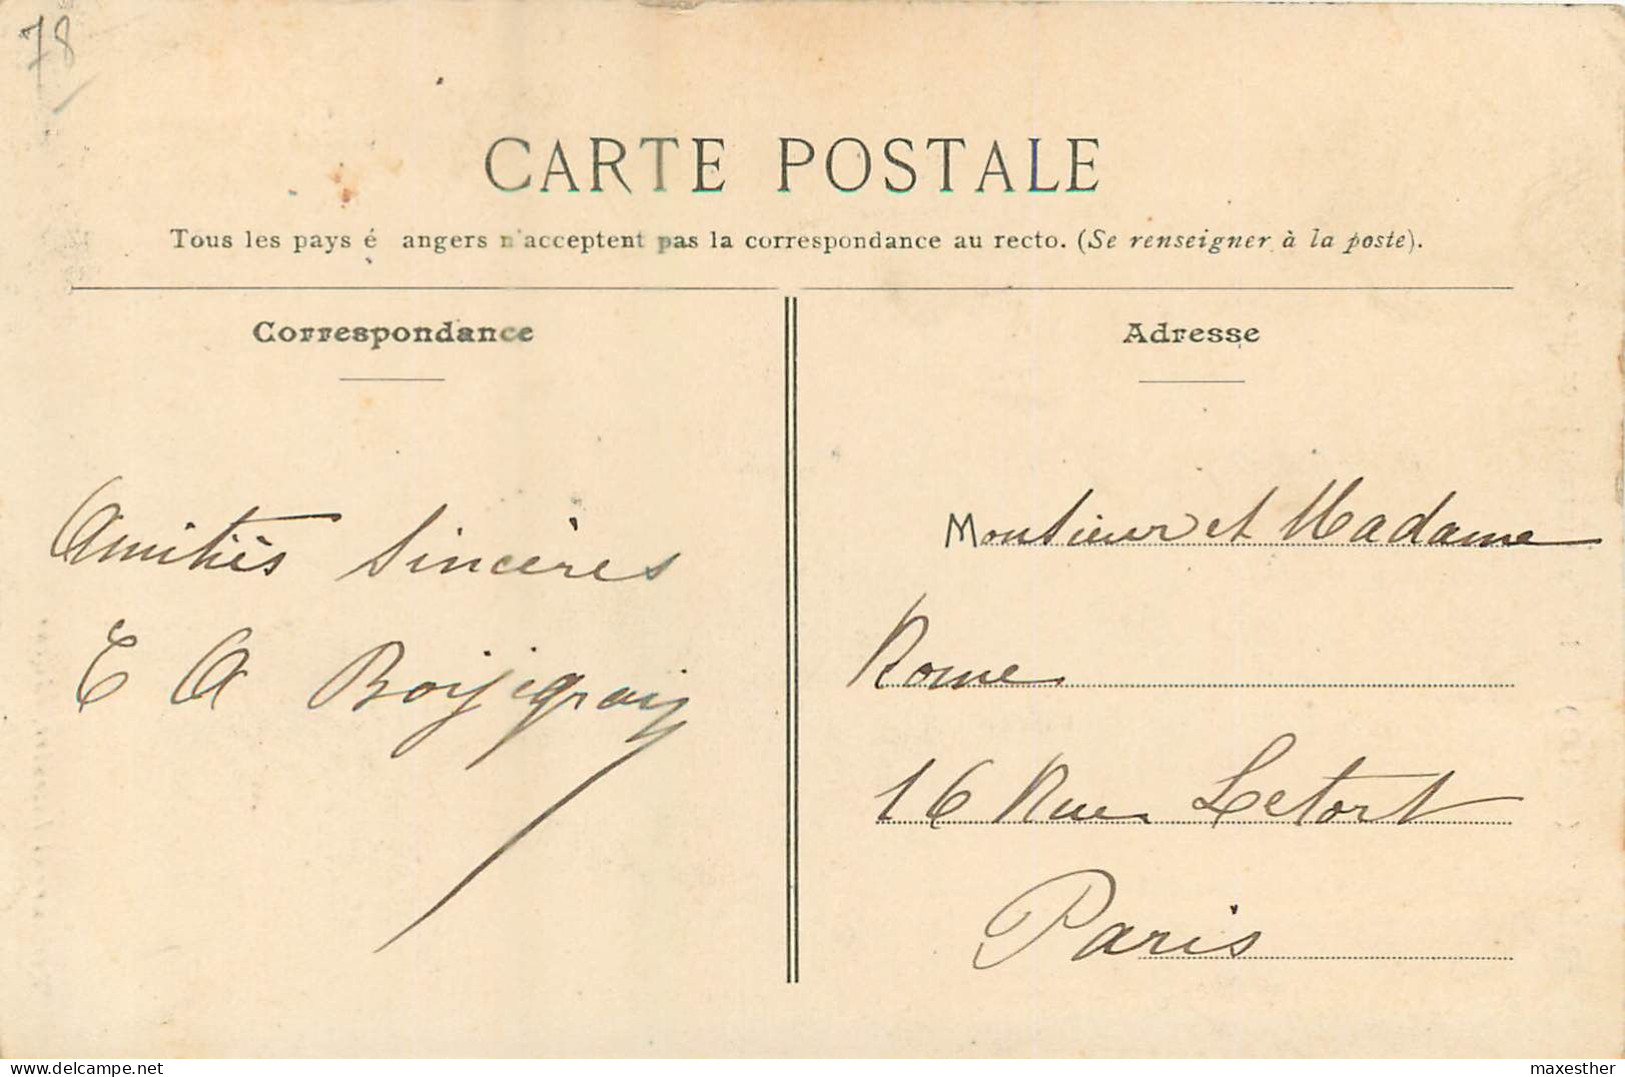 78
CARTE POSTALE
Tous les pays é angers n'acceptent pas la correspondance au recto. (Se renseigner à la poste).
Correspondance
Amitiés Sincères
E A
Adresse
Monsieur et Madame
Rome
16 Rue Letort
Paris
delcampe.net
maxesther